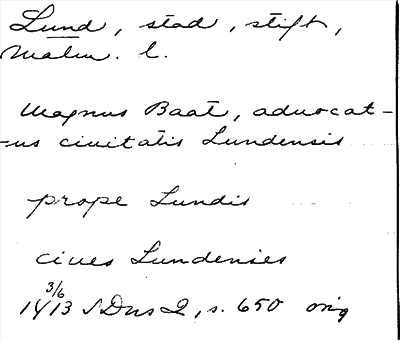 Lund, stad, stift,
Malm. l.
Magnus Baat, aduocat-
-us ciuitatis Lundensis
prope Lundis
ciues Lundenses
3/6
1413 SDns 2, s. 650 orig